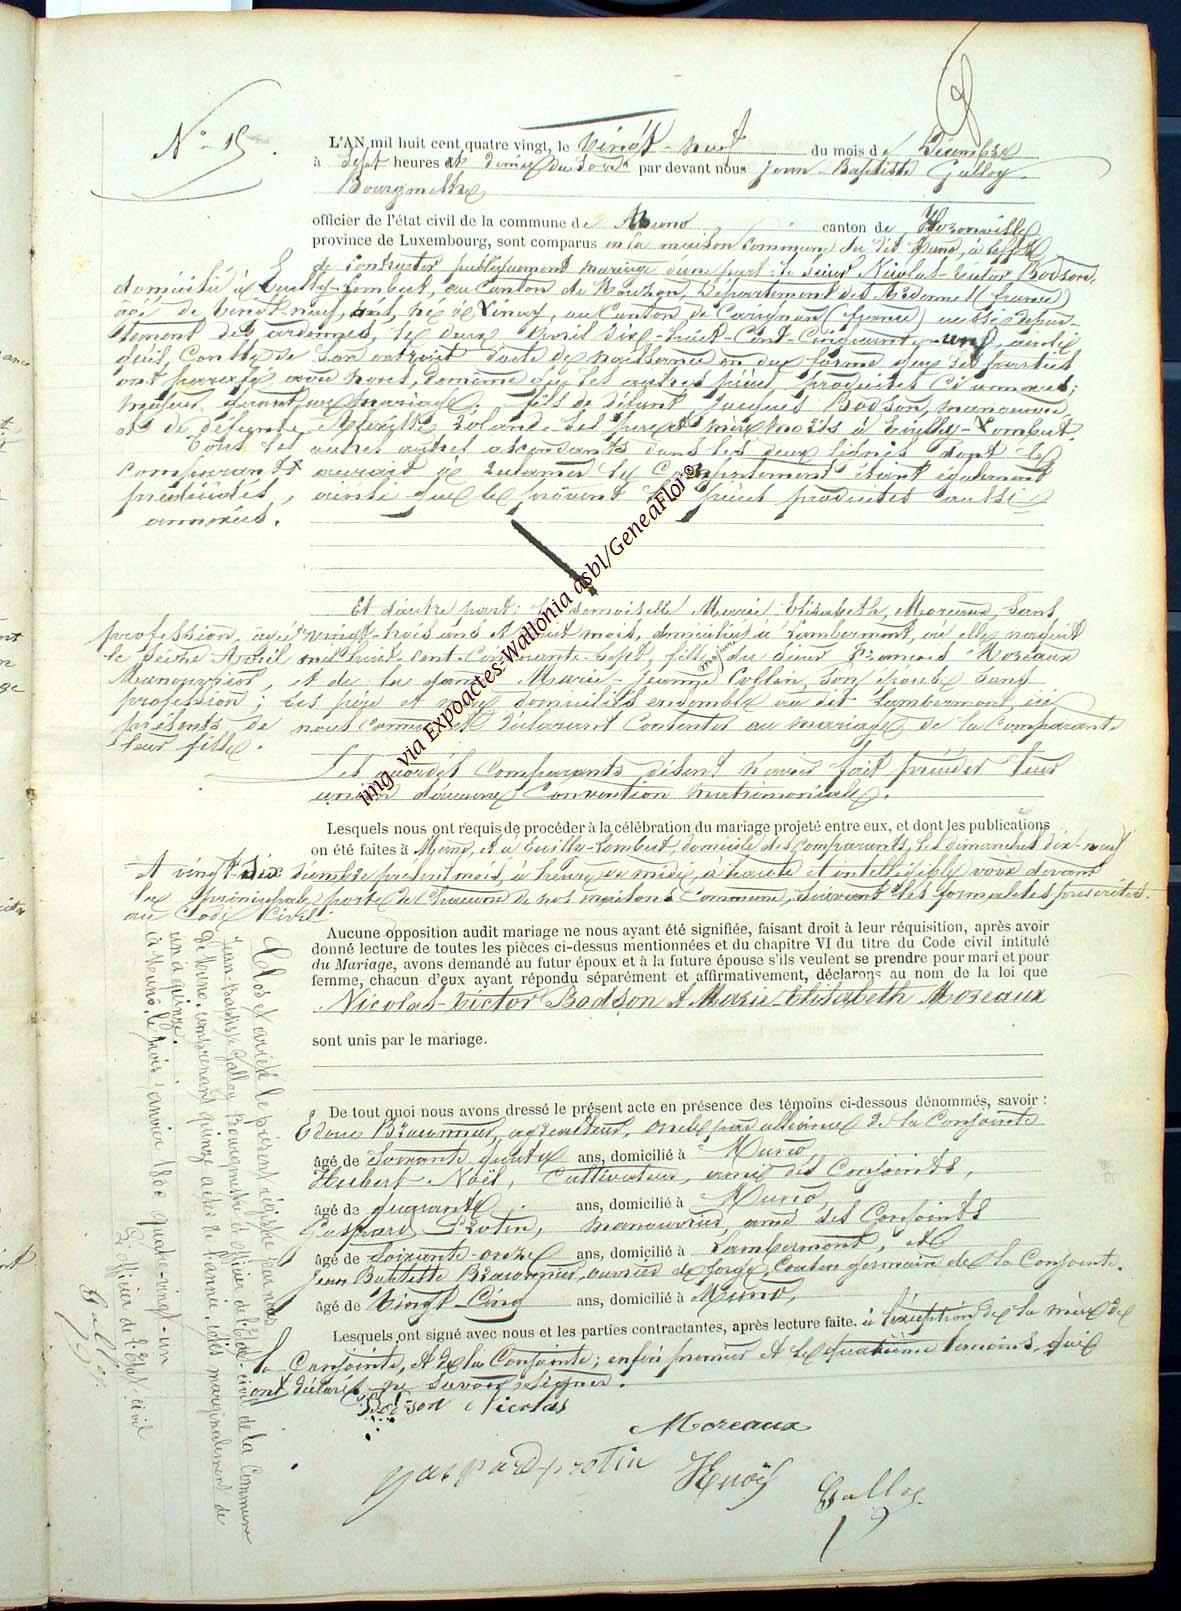 N° 15.
L'AN mil huit cent quatre vingt, le Vingt-neuf du mois de Décembre
à Sept heures et demie du soir par devant nous Jean-Baptiste Galloy.
Bourgmestre
officier de l'état civil de la commune de Muno canton de
province de Luxembourg, sont comparus en la maison commune du dit Muno, à l'effet
de contracter publiquement mariage d'une part: le sieur Nicolas-Victor Bodson,
domicilié à Euilly-Lombut, au Canton de Mouzon, Département des Ardennes (france)
âgé de vingt-neuf ans, né à, au Canton de Carignan (france) aussi dépar-
tement des ardennes, le deux Avril dix-huit-Cent-Cinquante-un, ainsi
qu'il Conste de son extrait d'acte de naissance en due forme que les parties
ont paraphé avec nous, de même que les autres pièces produites Ci annexées;
majeur quant au mariage; fils de défunt Jacques Bodson, manouvrier
et de défunte les père et mère morts à Euilly-Lombut.
Tous les autres ascendants dans les deux lignes dont le
comparant aurait à réclamer le Consentement étant également
prédécédés, ainsi que le prouvent les pièces produites aussi
annexées.
Et d'autre part; la demoiselle Marie Elisabeth Mozeaux, sans
profession, âgée vingt-trois ans et huit mois, domiciliée à Lambermont, où elle naquit
le Avril mil-huit-cent-Cinquante-Sept, fille majeure du sieur François Mozeaux
Manouvrier, et de la dame Marie-Jeanne Collin, son épouse sans
profession; les père et mère domiciliés ensemble au dit Lambermont, ici
présents de nous connus et déclarant Consentir au mariage de la Comparante
leur fille.
Les comparants disent n'avoir fait précéder leur
union d'aucune Convention matrimoniale.
Lesquels nous ont requis de procéder à la célébration du mariage projeté entre eux, et dont les publications
on été faites à Muno, et à Euilly-Lombut, domicile des Comparants, les dimanches dix-neuf
et vingt-six décembre présent mois, à heure de midi, à haute et intelligible voix devant
la principale porte de Chacune de nos maisons Commune, suivant les formalités prescrites
au Code Civil.
Aucune opposition audit mariage ne nous ayant été signifiée, faisant droit à leur réquisition, après avoir
donné lecture de toutes les pièces ci-dessus mentionnées et du chapitre VI du titre du Code civil intitulé
du Mariage, avons demandé au futur époux et à la future épouse s'ils veulent se prendre pour mari et pour
femme, chacun d'eux ayant répondu séparément et affirmativement, déclarons au nom de la loi que
Nicolas-Victor Bodson et Marie-Elisabeth Mozeaux
sont unis par le mariage.
De tout quoi nous avons dressé le présent acte en présence des témoins ci-dessous dénommés, savoir :
Braconnier, agriculteur, oncle par alliance de la Conjointe
âgé de Soixante quatre ans, domicilié à Muno,
Hubert Noël, Cultivateur, ami des Conjoints,
âgé de quarante ans, domicilié à Muno,
Gaspard Protin, manouvrier, ami des Conjoints
âgé de Soixante-onze ans, domicilié à Lambermont, et
Jean Baptiste Braconnier, ouvrier de forge, Cousin germain de la Conjointe.
âgé de Vingt-Cinq ans, domicilié à Muno,
Lesquels ont signé avec nous et les parties contractantes, après lecture faite. à l'exception de la mère de
la Conjointe, et de la Conjointe; enfin premier et le quatrième témoins qui
ont déclaré ne savoir signer.
Bodson Nicolas
Mozeaux
gaspard protin
HNoël
Galloy.
Clos et arrêté le présent régistre par nous
Jean-Baptiste Galloy Bourgmestre et officier de l'Etat-civil de la Commune
de Muno, comprenant quinze actes de l'année, cotés marginalement de
un à quinze.
à Muno, le trois Janvier 1800 quatre-vingt-un
L'officier de l'Etat-civil
Galloy.
img via Expoactes-Wallonia asbl/GeneaFloi©